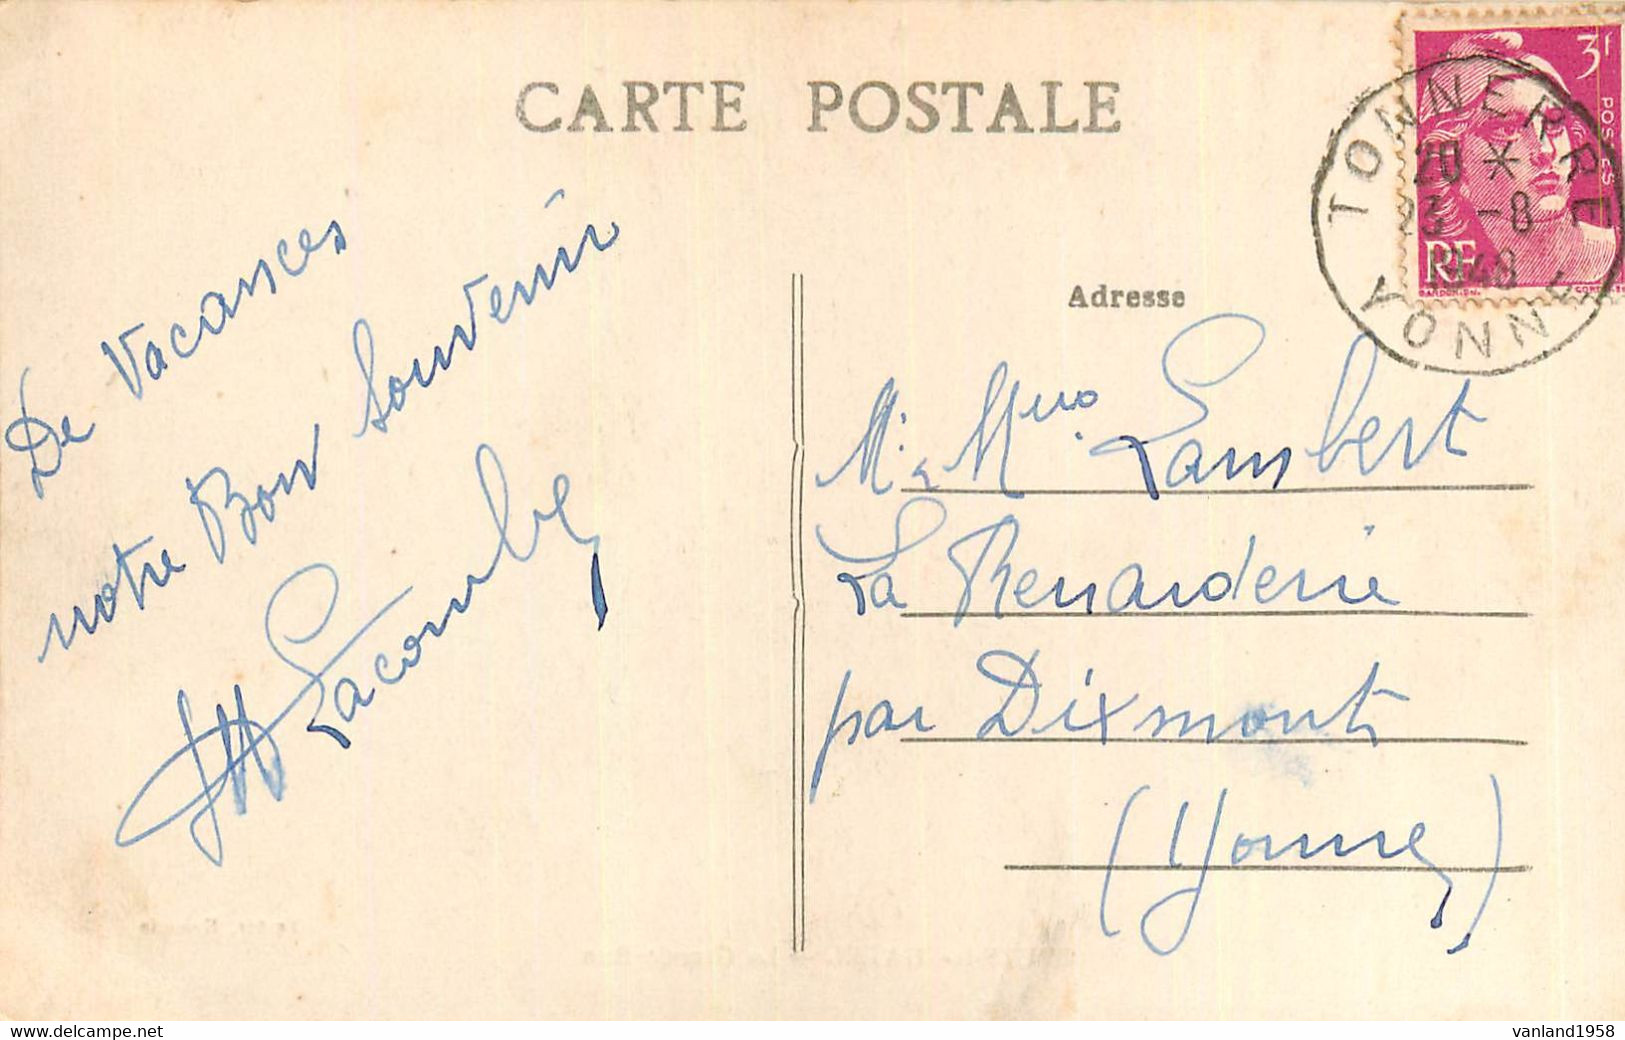 CARTE POSTALE
De Vacances
notre Bon Souvenir
Lacombe
Adresse
M. & Mme Lambert
La Renarderie
par Dixmont
(Yonne)
3F
POSTES
RF
GANDON
TONNERRE
20 *
23 -8
1948
YONNE
delcampe.net
vanland1958